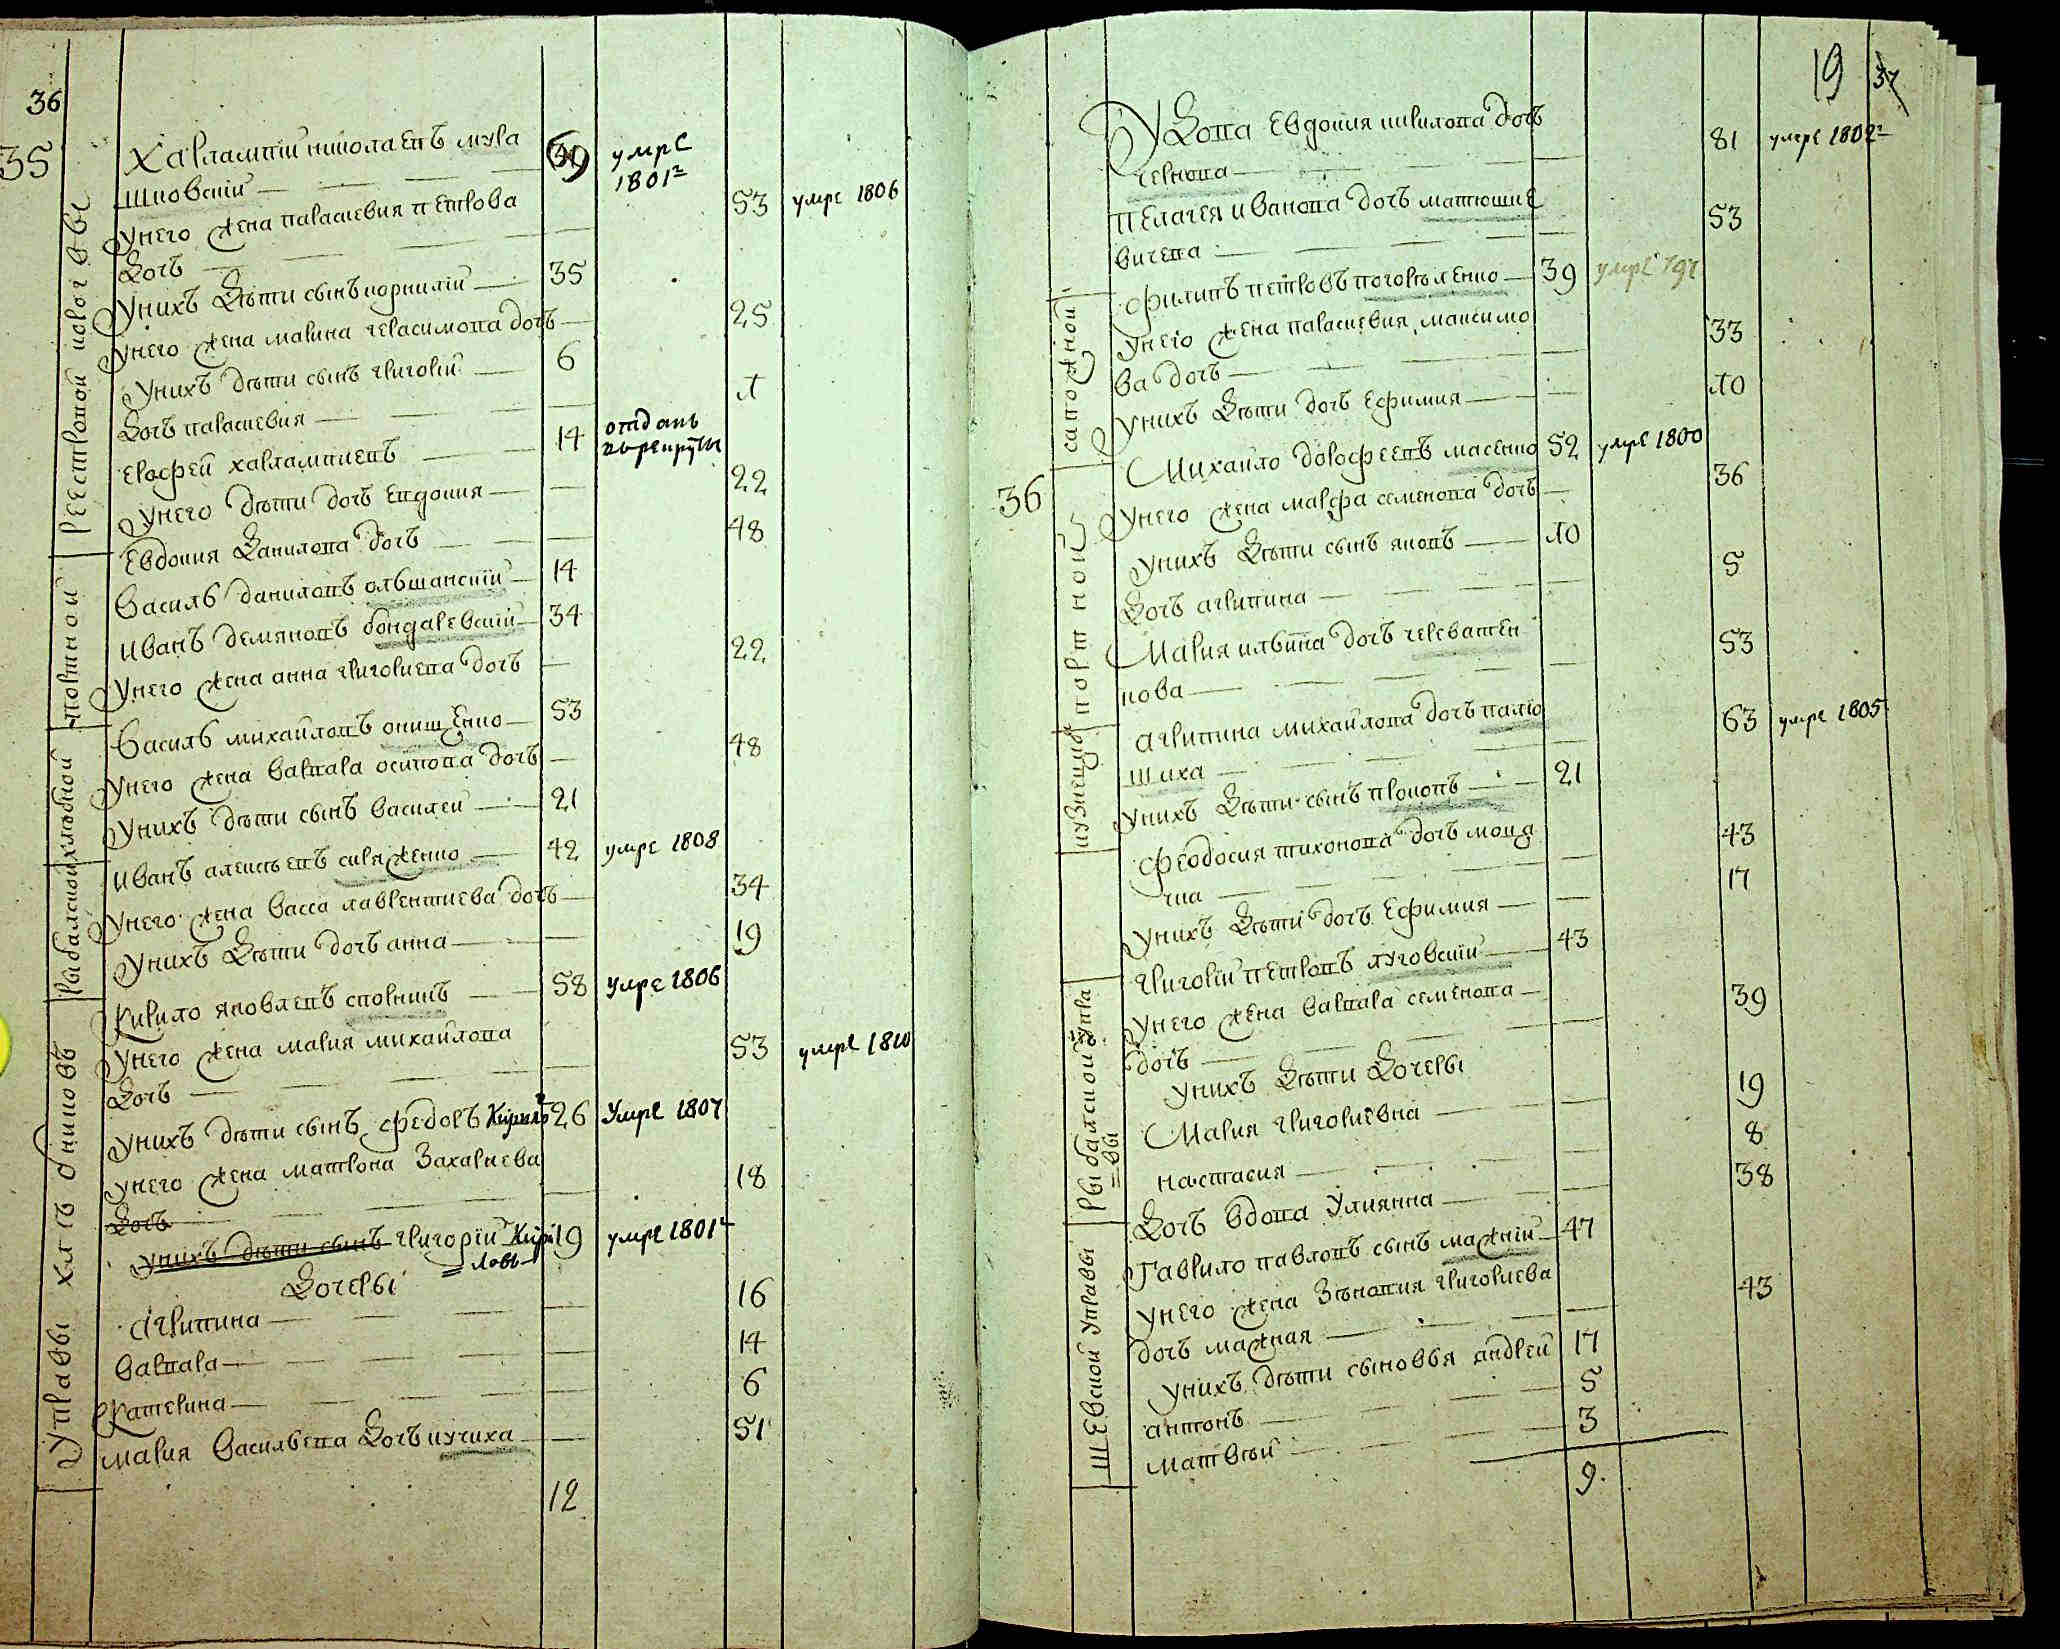 36
35
Харлампій николаевъ мура
шковскій — 59 умре 1801г
унего жена параскевия петрова
дочь — 53 умре 1806
унихъ дѣти сынъ корнилій — 35
унего жена марина герасимова дочь — 25
унихъ дѣти сынъ григорій — 6
дочь параскевия — 1
ерофей харлампиевъ — 14 отданъ
врекруты
унего дѣти дочь евдокия — 22
евдокия данилова дочь — 48
василь даниловъ ольшанскій — 14
иванъ демяновъ бондаревскій — 34
унего жена анна григориева дочь — 22
василь михайловъ онищенко — 53
унего жена варвара осипова дочь — 48
унихъ дѣти сынъ василей — 21
иванъ алексѣевъ скряженко — 42 умре 1808
унего жена васса лаврентиева дочь — 34
унихъ дѣти дочь анна — 19
кирило яковлевъ сполникъ — 58 умре 1806
унего жена мария михайлова
дочь — 53 умре 1810
унихъ дѣти сынъ федоръ 26 умре 1807
унего жена матрона захариева
дочь — 18
унихъ дѣти сынъ григорій Кири 19 умре 1801г
ловъ
дочеры
агрипина — 16
варвара — 14
катерина — 6
мария васильева дочь кучиха — 51
12
реестровой
портной
хлѣбной
рыбалской
управы хлѣбниковъ
19 37
удова евдокия кирилова дочь
чернова — 81 умре 1802г
пелагея иванова дочь матюшке
вичева — 53
филипъ петровъ погорѣленко — 39 умре 797
унего жена параскевия максимо
ва дочь — 33
унихъ дѣти дочь ефимия — 10
36
михайло дорофеевъ масенко 52 умре 1800
унего жена марфа семенова дочь — 36
унихъ дѣти сынъ яковъ — 10
дочь агрипина — 5
мария илвина дочь череватен
кова — 53
агрипина михайлова дочь палю
шиха — 63 умре 1805
унихъ дѣти сынъ прокопъ — 21
феодосия тихонова дочь моця
чка — 43
унихъ дѣти дочь ефимия — 17
григорій петровъ луговскій — 43
унего жена варвара семенова —
дочь — 39
унихъ дѣти дочеры
мария григориевна — 19
настасия — 8
дочь вдова улиянна — 38
гаврило павловъ сынъ мажній — 47
унего жена зѣновия григориева
дочь мажная — 43
унихъ дѣти сыновья андрей 17
антонъ — 5
матвѣй — 3
9.
сапожной
портной
кузнецкой
рыбалской упра
вы
шевской управы